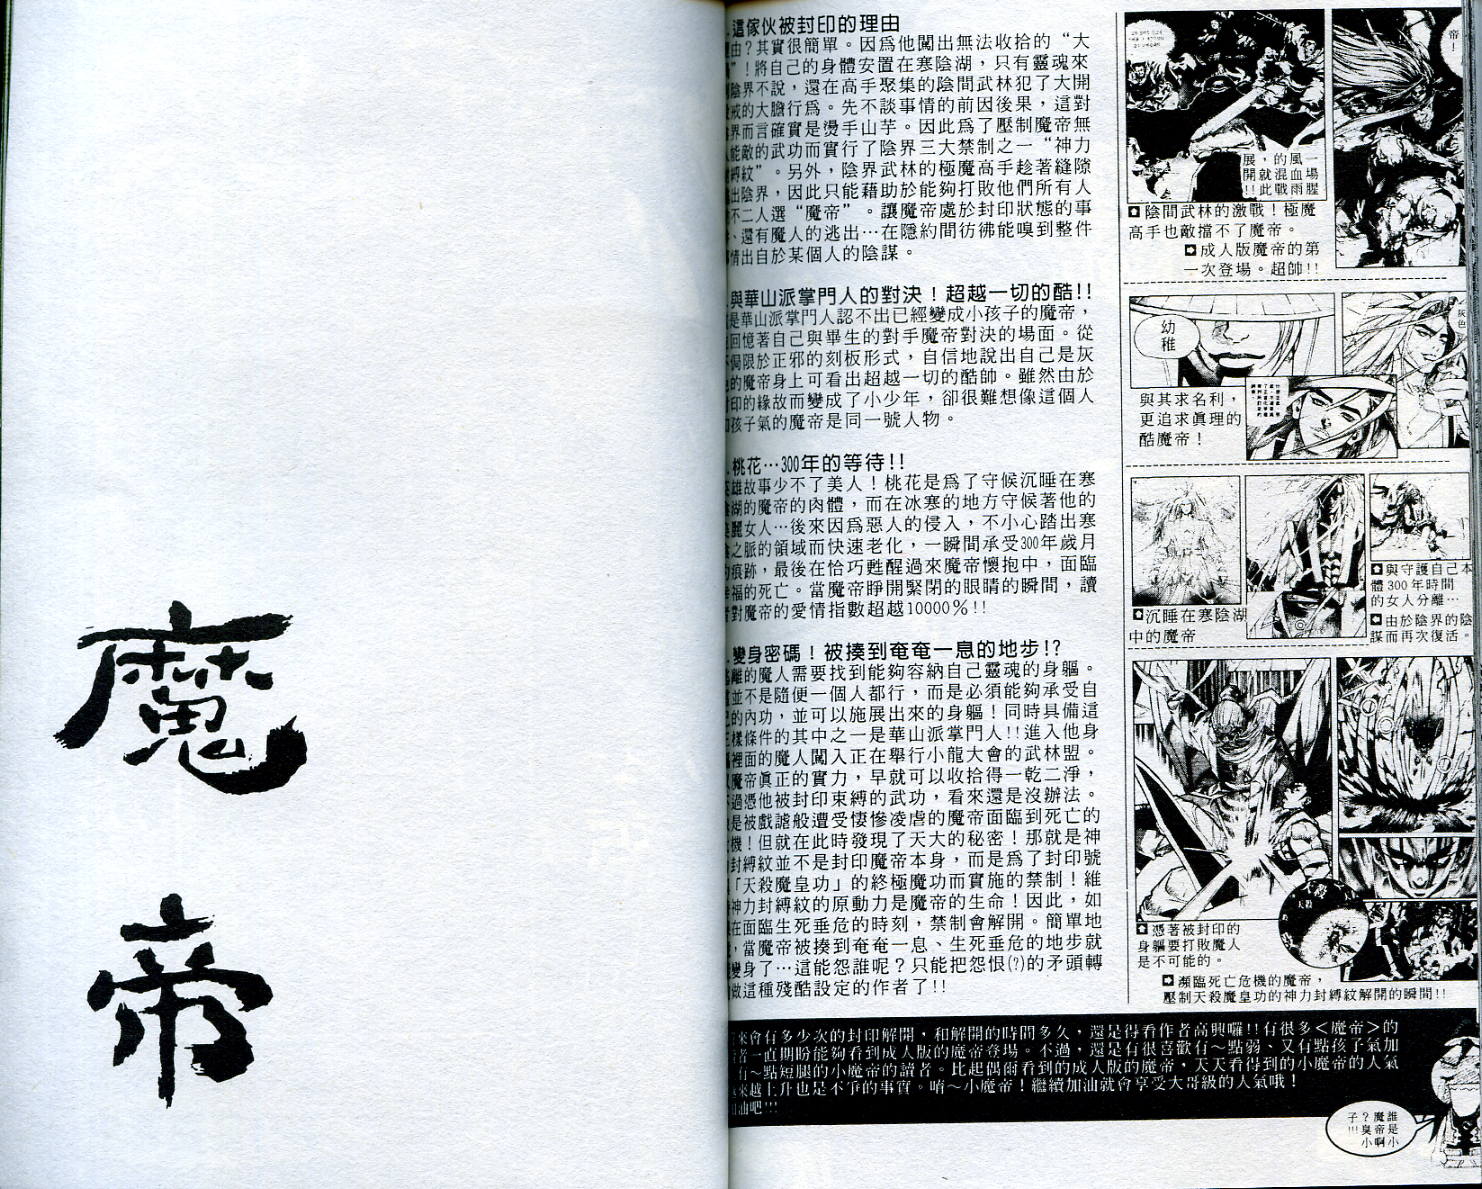 魔
帝
這傢伙被封印的理由
由？其實很簡單。因爲他闖出無法收拾的“大
”！將自己的身體安置在寒陰湖，只有靈魂來
陰界不說，還在高手聚集的陰間武林犯了大開
戒的大膽行爲。先不談事情的前因後果，這對
界而言確實是燙手山芋。因此爲了壓制魔帝無
能敵的武功而實行了陰界三大禁制之一“神力
縛紋”。另外，陰界武林的極魔高手趁著縫隙
出陰界，因此只能藉助於能夠打敗他們所有人
不二人選“魔帝”。讓魔帝處於封印狀態的事
、還有魔人的逃出…在隱約間彷彿能嗅到整件
情出自於某個人的陰謀。
與華山派掌門人的對決！超越一切的酷!!
是華山派掌門人認不出已經變成小孩子的魔帝，
回憶著自己與畢生的對手魔帝對決的場面。從
侷限於正邪的刻板形式，自信地說出自己是灰
的魔帝身上可看出超越一切的酷帥。雖然由於
印的緣故而變成了小少年，卻很難想像這個人
孩子氣的魔帝是同一號人物。
桃花…300年的等待!!
雄故事少不了美人！桃花是爲了守候沉睡在寒
湖的魔帝的肉體，而在冰寒的地方守候著他的
麗女人…後來因爲惡人的侵入，不小心踏出寒
之脈的領域而快速老化，一瞬間承受300年歲月
痕跡，最後在恰巧甦醒過來魔帝懷抱中，面臨
福的死亡。當魔帝睜開緊閉的眼睛的瞬間，讀
對魔帝的愛情指數超越10000％!!
變身密碼！被揍到奄奄一息的地步!?
離的魔人需要找到能夠容納自己靈魂的身軀。
並不是隨便一個人都行，而是必須能夠承受自
的內功，並可以施展出來的身軀！同時具備這
樣條件的其中之一是華山派掌門人!!進入他身
裡面的魔人闖入正在舉行小龍大會的武林盟。
魔帝眞正的實力，早就可以收拾得一乾二淨，
過憑他被封印束縛的武功，看來還是沒辦法。
是被戲謔般遭受悽慘凌虐的魔帝面臨到死亡的
機！但就在此時發現了天大的秘密！那就是神
封縛紋並不是封印魔帝本身，而是爲了封印號
「天殺魔皇功」的終極魔功而實施的禁制！維
神力封縛紋的原動力是魔帝的生命！因此，如
在面臨生死垂危的時刻，禁制會解開。簡單地
，當魔帝被揍到奄奄一息、生死垂危的地步就
變身了…這能怨誰呢？只能把怨恨(?)的矛頭轉
做這種殘酷設定的作者了!!
帝！
展，的風一
開就混血場
!!此戰雨腥
陰間武林的激戰！極魔
高手也敵擋不了魔帝。
成人版魔帝的第
一次登場。超帥!!
幼
稚
灰色
與其求名利，
更追求眞理的
酷魔帝！
沉睡在寒陰湖
中的魔帝
與守護自己本
體300年時間
的女人分離…
由於陰界的陰
謀而再次復活。
天殺
憑著被封印的
身軀要打敗魔人
是不可能的。
瀕臨死亡危機的魔帝，
壓制天殺魔皇功的神力封縛紋解開的瞬間!!
來會有多少次的封印解開，和解開的時間多久，還是得看作者高興囉!!有很多＜魔帝＞的
者一直期盼能夠看到成人版的魔帝登場。不過，還是有很喜歡有～點弱、又有點孩子氣加
有～點短腿的小魔帝的讀者。比起偶爾看到的成人版的魔帝，天天看得到的小魔帝的人氣
來越上升也是不爭的事實。唷～小魔帝！繼續加油就會享受大哥級的人氣哦！
油吧!!!
子？魔誰
!!!臭帝是
小啊小